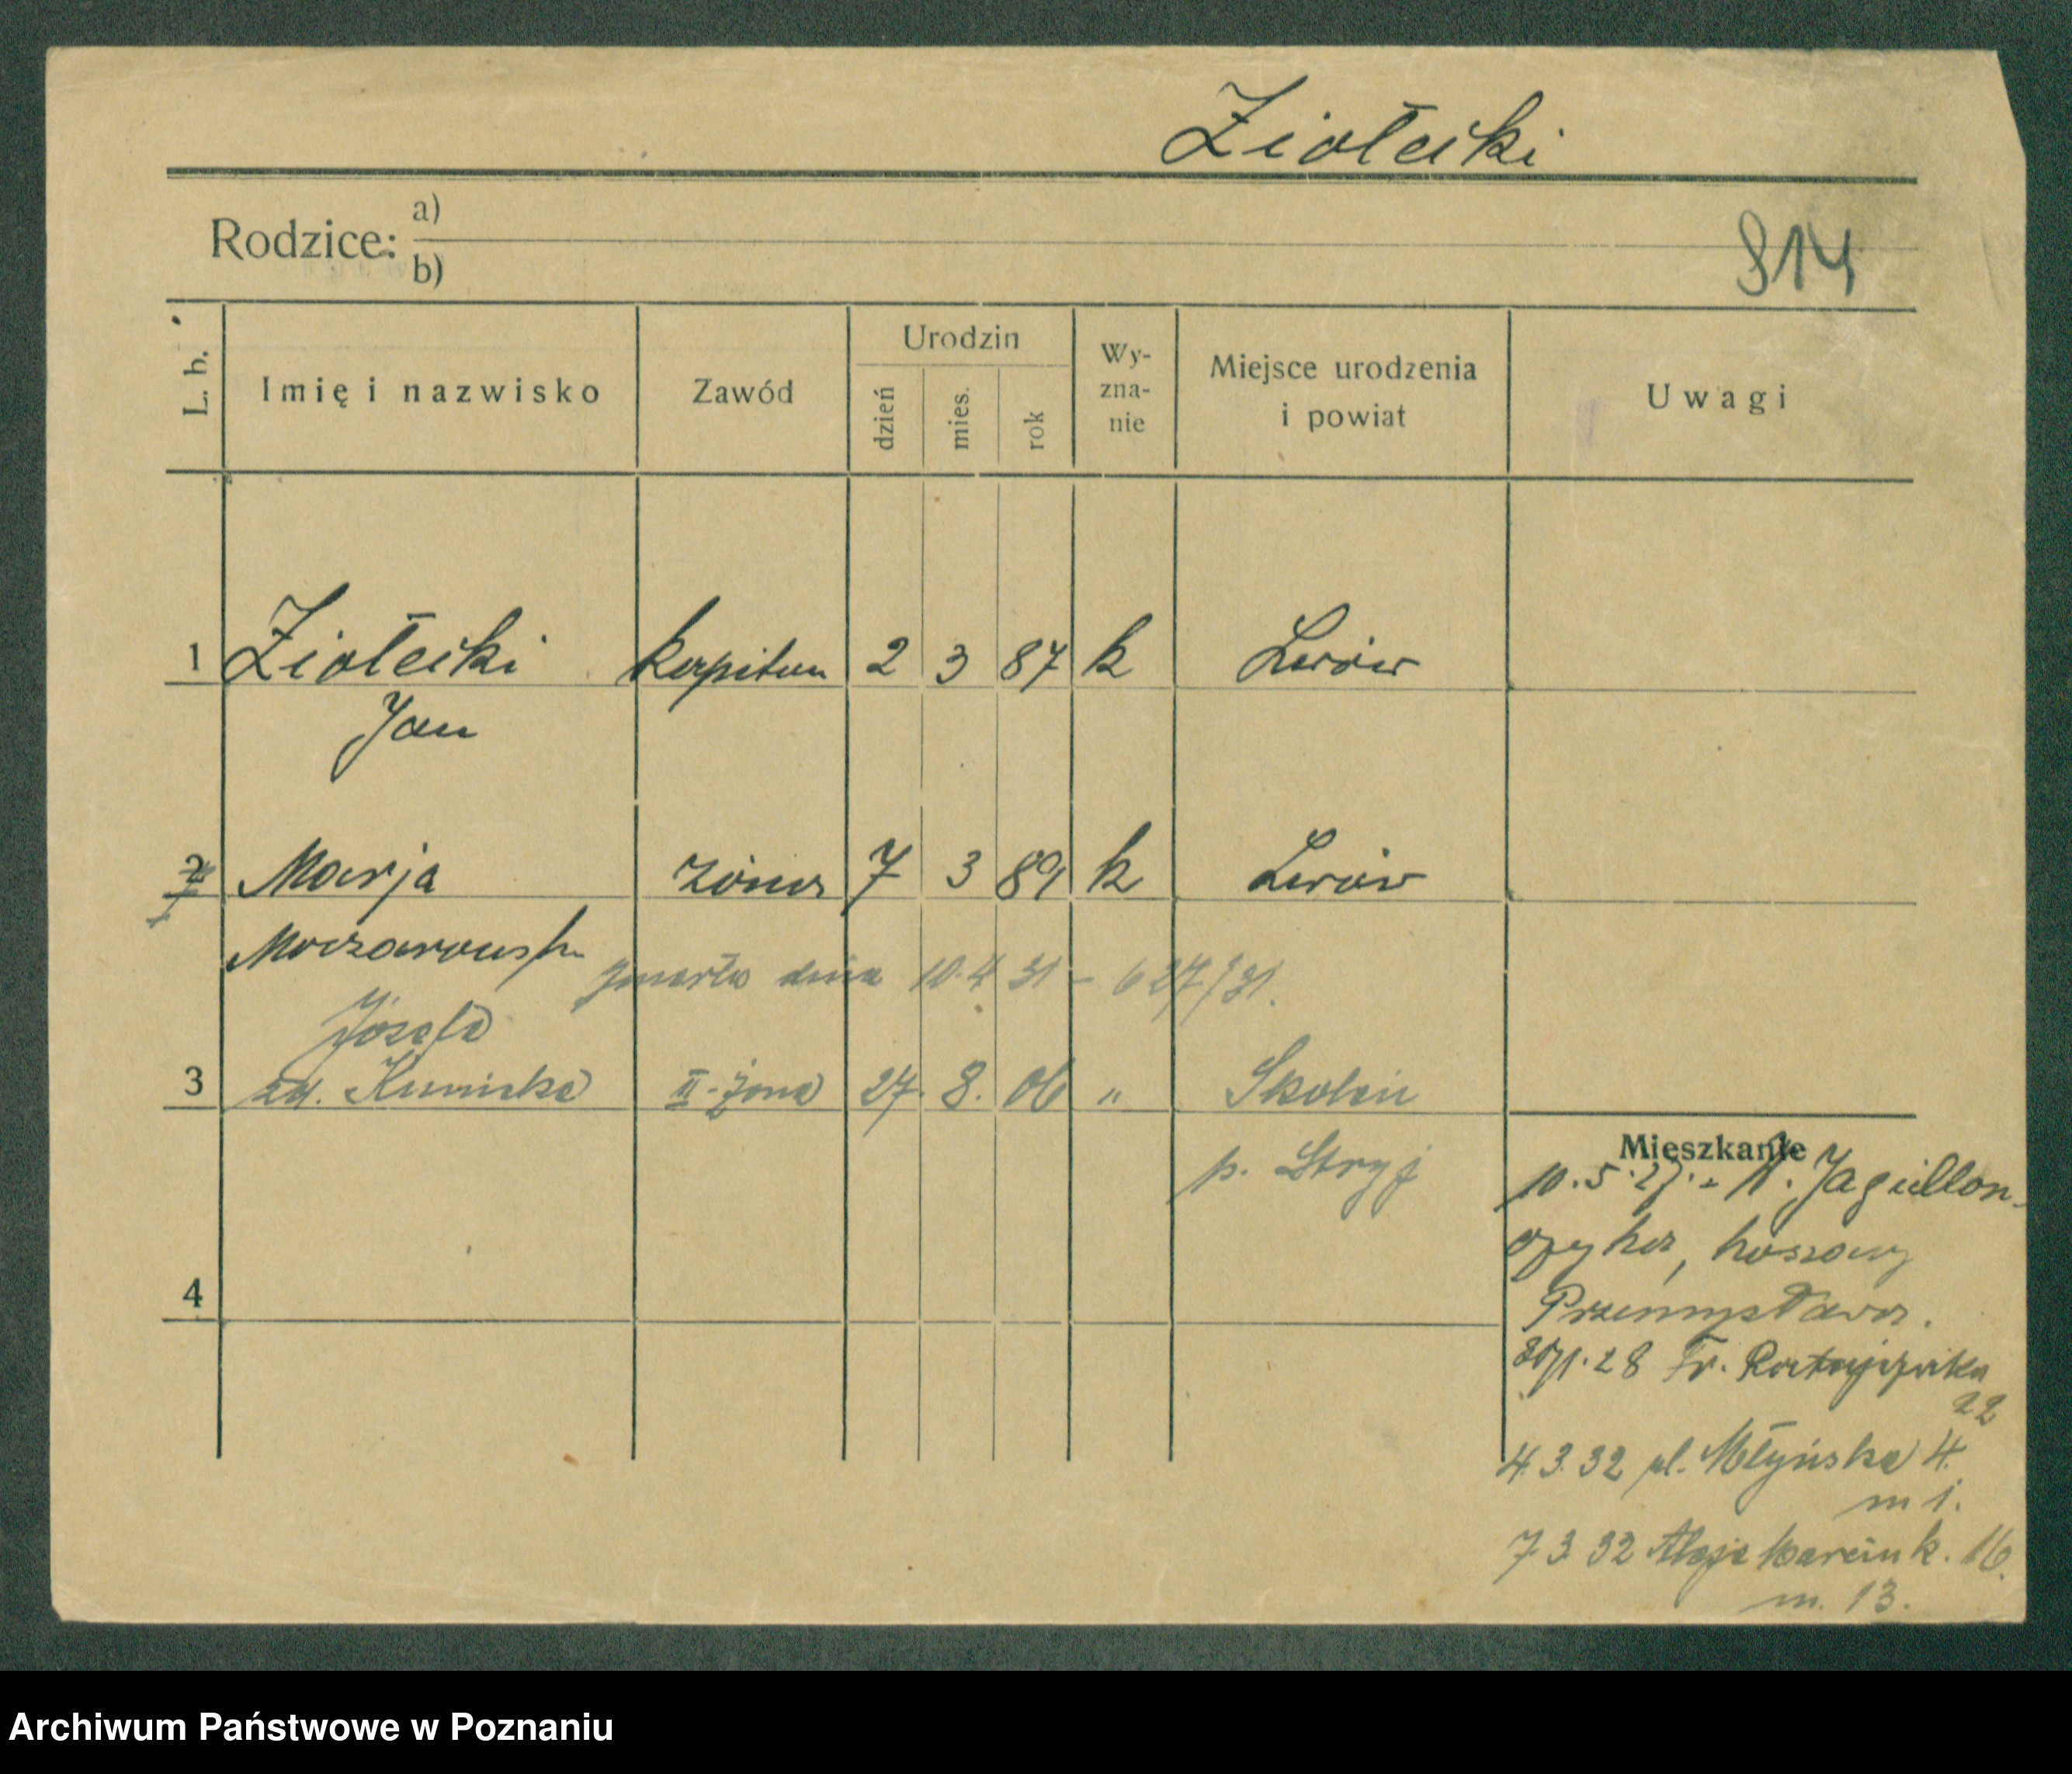 Ziołecki
Rodzice: a)
b)
814
L. b.
Imię i nazwisko
Zawód
Urodzin
dzień
mies.
rok
Wy-
zna-
nie
Miejsce urodzenia
i powiat
Uwagi
1 Ziołecki kapitan 2 3 87 k Lwów
Jan
2 Marja żona 7 3 89 k Lwów
Moczarowska
zmarła dnia 10.4 31 - 627/31.
Józefa
3 zd. Kunicka II-żona 27. 8. 06 " Skolem
p. Stryj
4
Mieszkanie
10.5.27. - Jagiellon-
czyka, koszary
Przemysława.
28 Fr. Ratajczaka
22
4.3.32 pl. Młyńska 4.
m 1.
7.3.32 Aleje Marcink. 16.
m. 13.
Archiwum Państwowe w Poznaniu